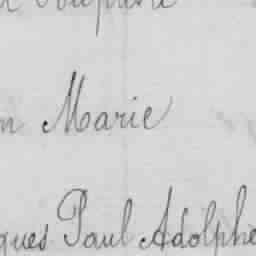 n Marie
ques Paul Adolphe